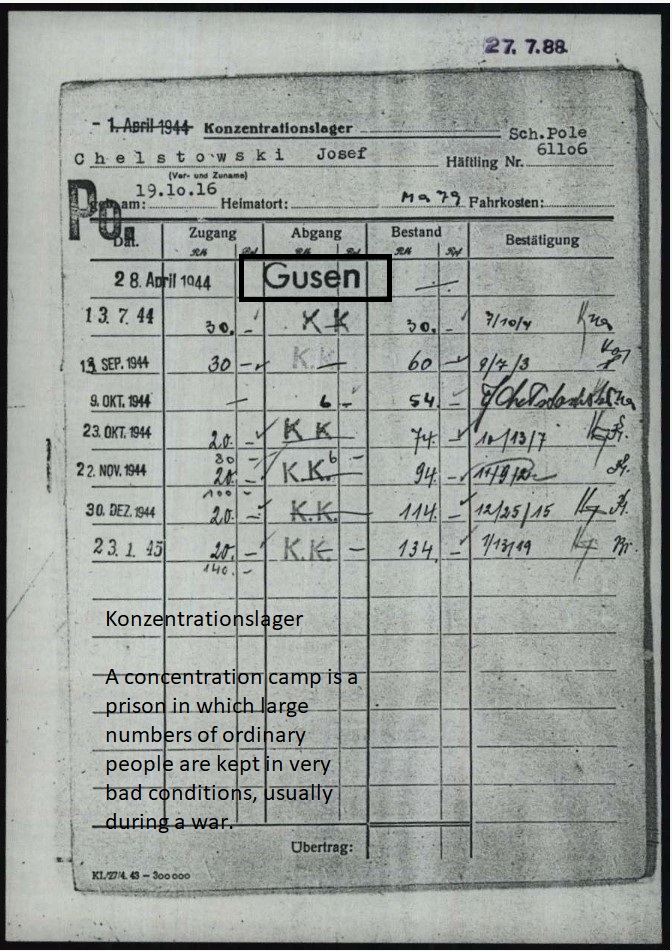 27. 7. 88
- 1. April 1944 Konzentrationslager
Sch.Pole
Chelstowski Josef Häftling Nr. 61106
(Vor- und Zuname)
Po.
geb. am: 19.10.16 Heimatort: Ma 79 Fahrkosten:
Dat. Zugang Abgang Bestand Bestätigung
RM Rpf RM Rpf RM Rpf
28. April 1944 Gusen
13. 7. 44 30. - K K 30. - 7/10/4
13. SEP. 1944 30 - K.K. 60 - 9/7/3
9. OKT. 1944 - 6 - 54. -
23. OKT. 1944 20. - K K 74 - 10/13/7
30 -
22. NOV. 1944 20. - K.K. 6 94 - 11/9/2
100 -
30. DEZ. 1944 20. - K.K. - 114. - 12/25/15
23. 1. 45 20. - K.K. - 134 - 1/13/19
140. -
Konzentrationslager
A concentration camp is a
prison in which large
numbers of ordinary
people are kept in very
bad conditions, usually
during a war.
Übertrag:
KL/27/4. 43 – 300 000